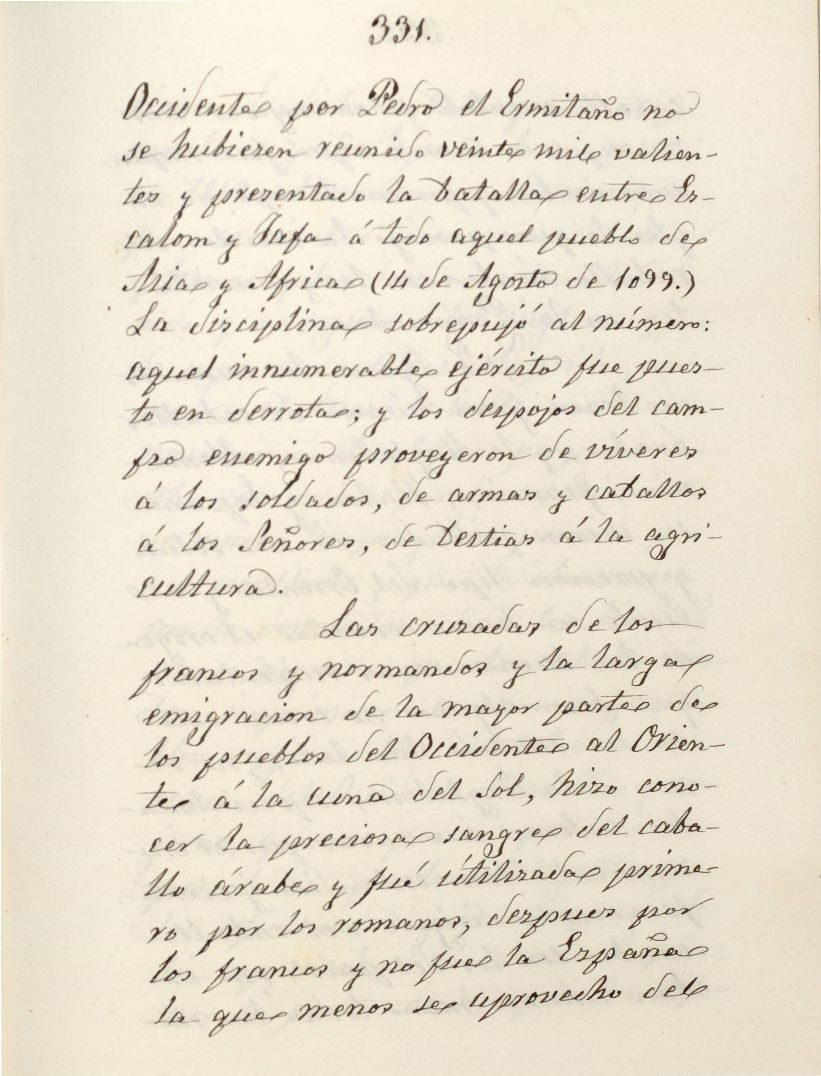 331.
Occidente por Pedro el Ermitaño no
se hubiezen reunido veinte mil valien-
tes y prezentado la batalla entre Ez-
calom y Jafa á todo aquel pueblo de
Asia y Africa (14 de Agosto de 1099.)
La disciplina sobrepujó al número:
aquel innumerable ejército fue puez-
to en derrota; y los despojos del cam-
po enemigo proveyeron de víveres
á los soldados, de armas y caballos
á los Señores, de bestias á la agri-
cultura.
Las cruzadas de los
francos y normandos y la larga
emigracion de la mayor parte de
los pueblos del Occidente al Orien-
te á la cuna del Sol, hizo cono-
cer la preciosa sangre del caba-
llo árabe y fué útilizada prime-
ro por los romanos, dezpues por
los francos y no fue la Ezpaña
la que menos se aprovecho del